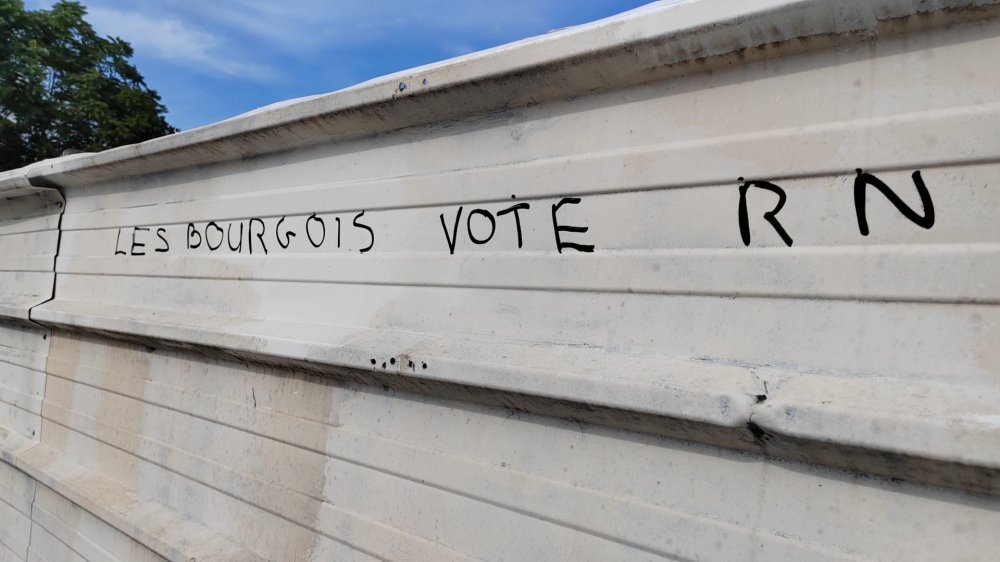 LES BOURGOIS VOTE RN